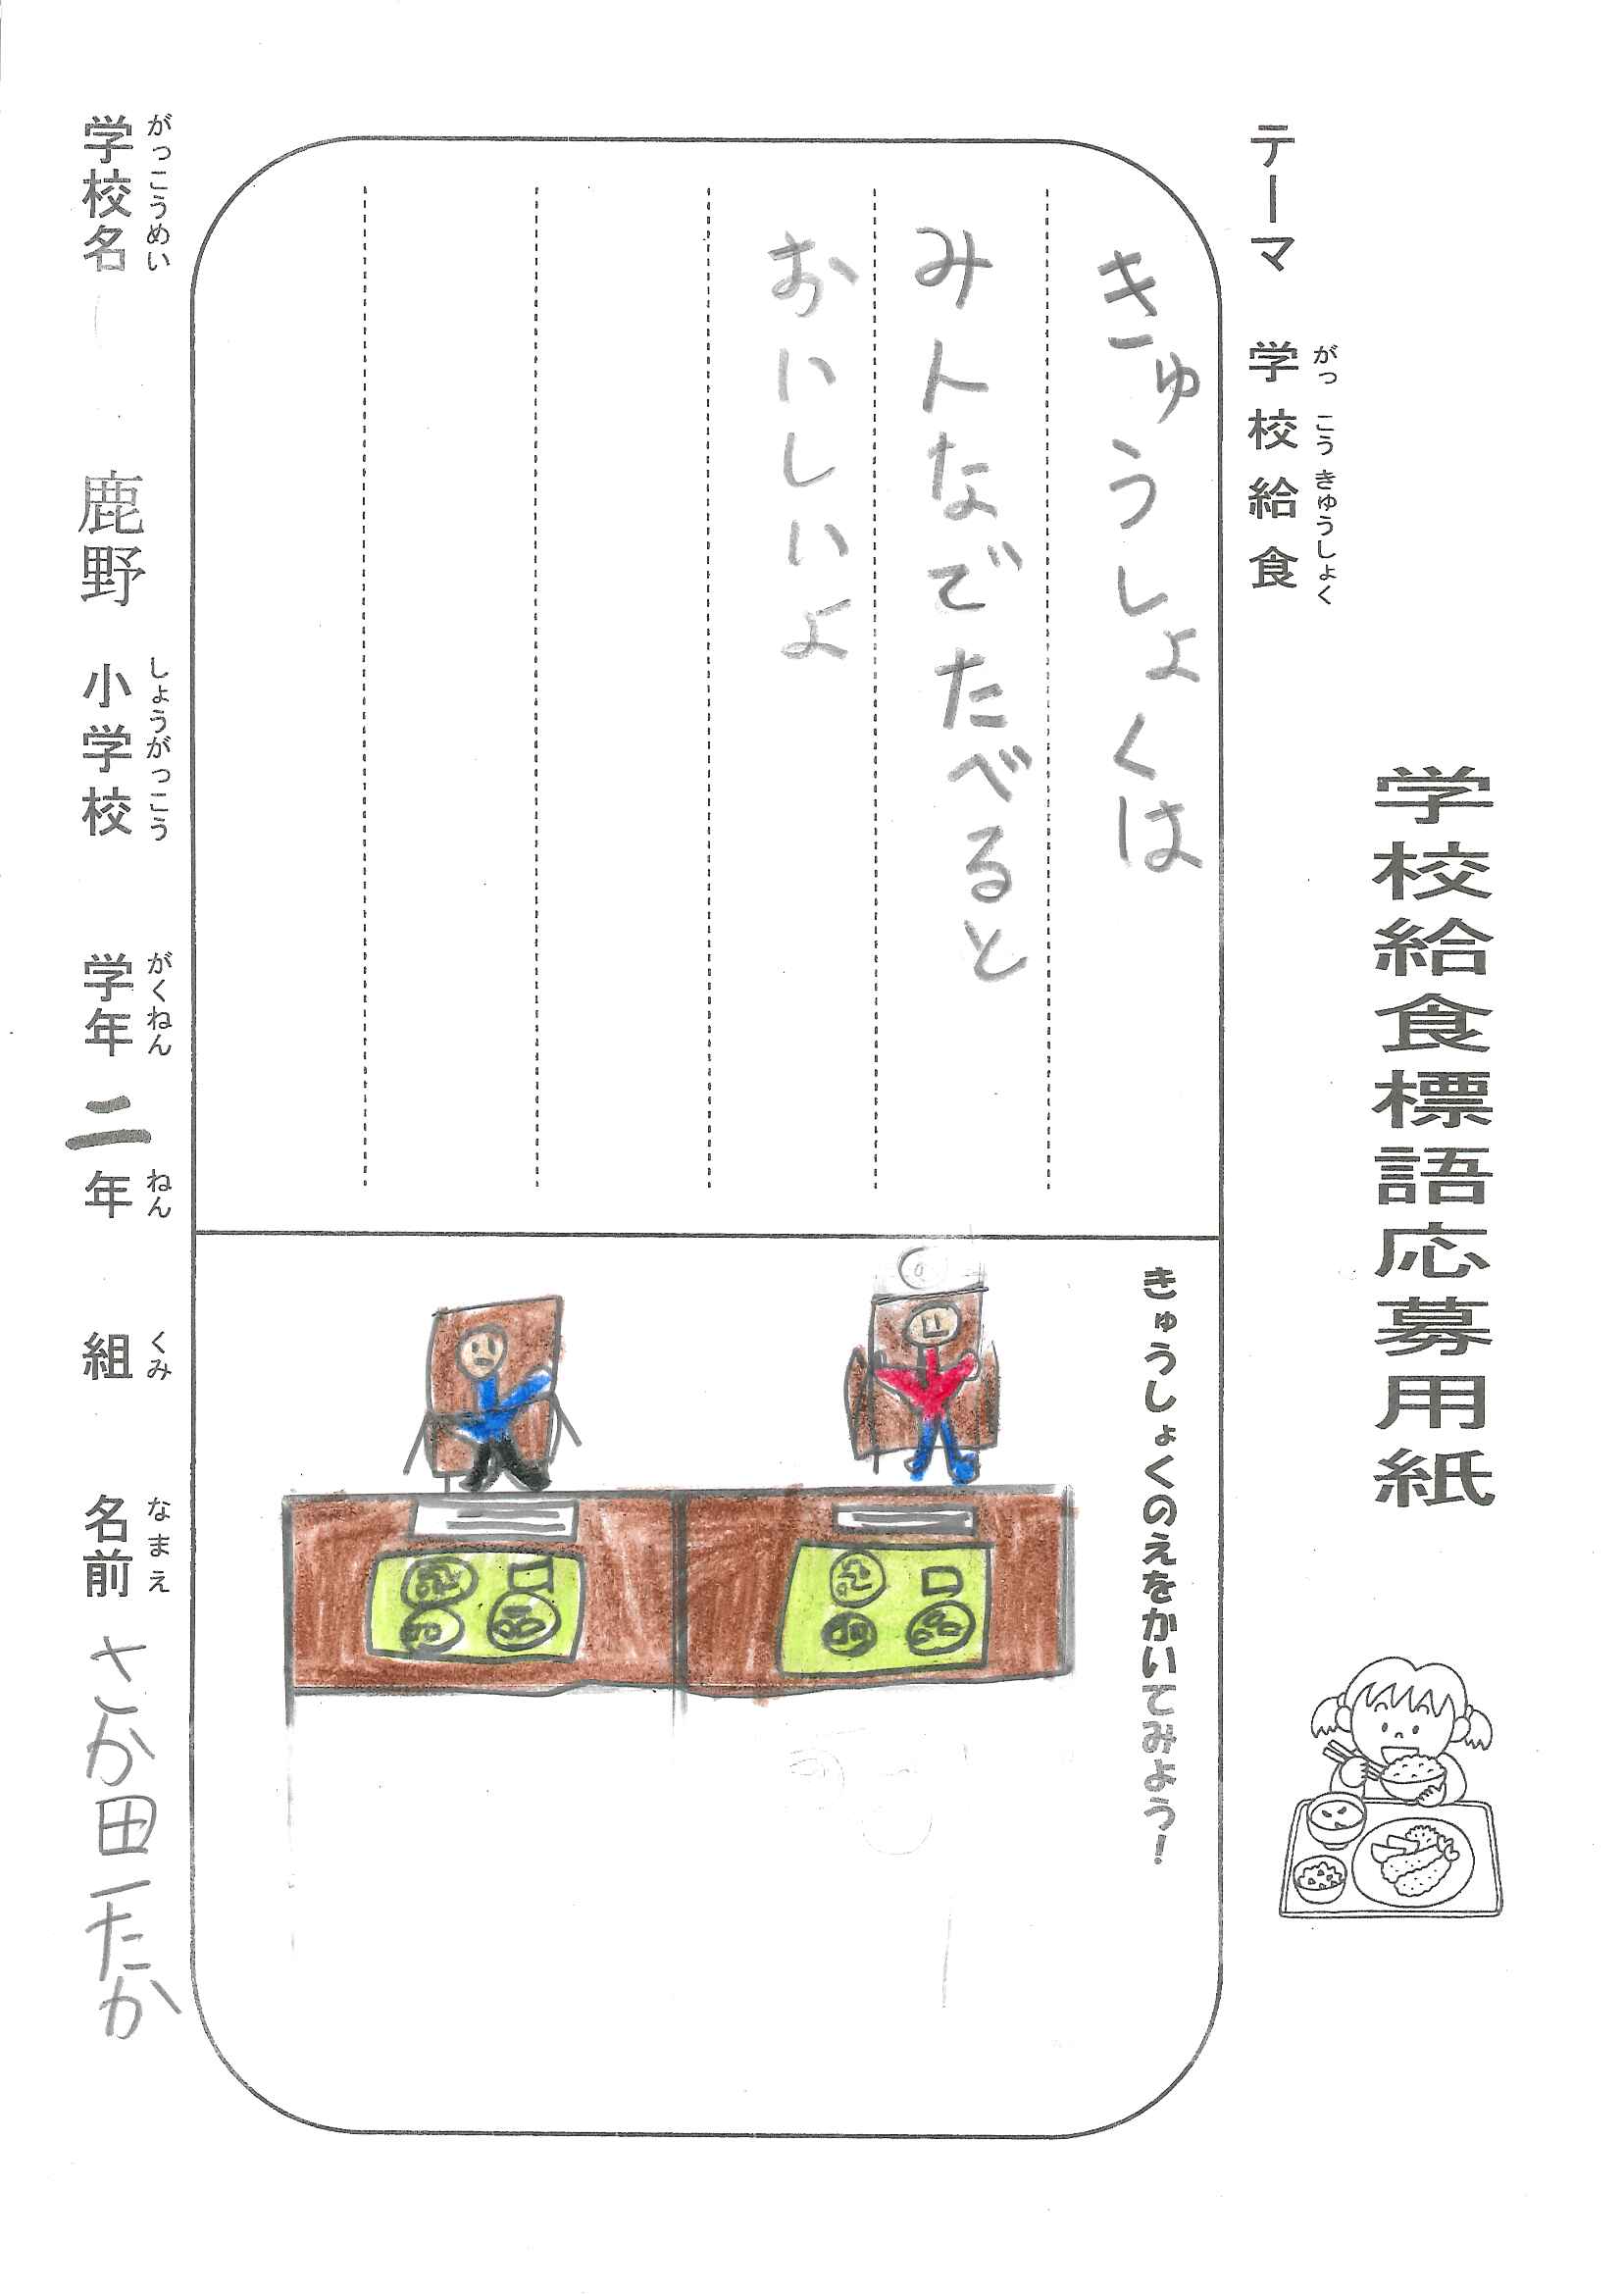 学校給食標語応募用紙
テーマ 学校給食
がっ こう きゅうしょく
きゅうしょくは
みトなでたべると
おいしいよ
きゅうしょくのえをかいてみよう！
学校名 鹿野 小学校 学年 二年 組 名前 さか田一たか
がっこうめい しょうがっこう がくねん ねん くみ なまえ